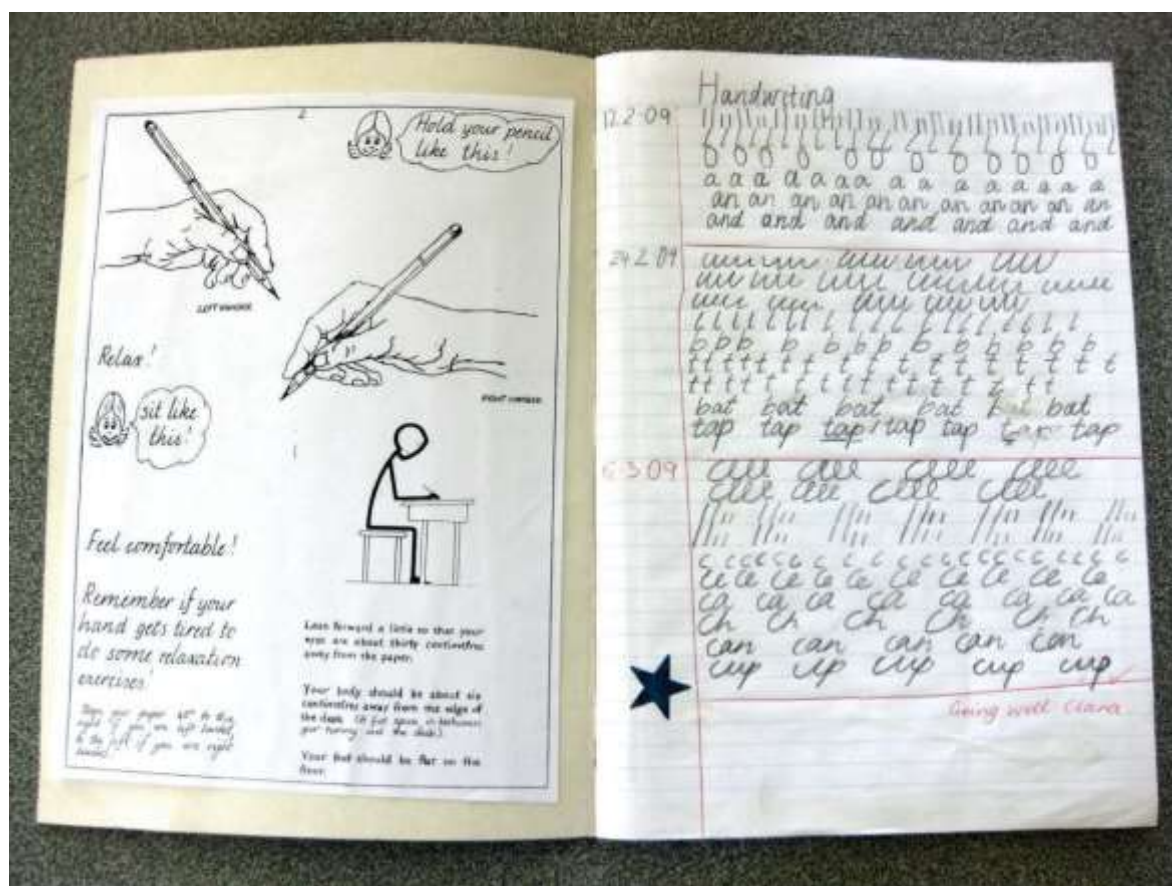 2
Hold your pencil
like this!
LEFT HANDER
Relax!
RIGHT HANDER
sit like
this!
Feel comfortable!
Remember if your
hand gets tired to
do some relaxation
exercises!
your paper to the
right if you are left handed,
to the left if you are right
Lean forward a little so that your
eyes are about thirty centimetres
away from the paper.
Your body should be about six
centimetres away from the edge of
the desk. (A fist space in between
your tummy and the desk.)
Your feet should be flat on the
floor.
Handwriting
12.2.09
a a a a a a a a a a a a a a
an an an an an an an an an an an
and and and and and and and
24.2.09
b b b b b b b b b b b b
bat bat bat bat bat bat
tap tap tap tap tap tap tap
6.3.09
ce ce ce ce ce ce ce ce ce ce
ca ca ca ca ca ca ca ca
ch ch ch ch ch ch
can can can can can
cup up cup cup cup
Going well Clara